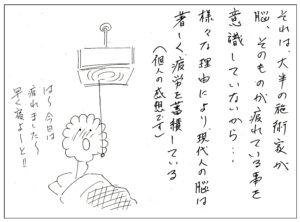 それは、大半の施術家が
脳、そのものが疲れている事を
意識していないから・・・
様々な理由により、現代人の脳は
著しく、疲労を蓄積している
(個人の感想です)
は〜今日は
疲れました〜
早く寝よーと!!